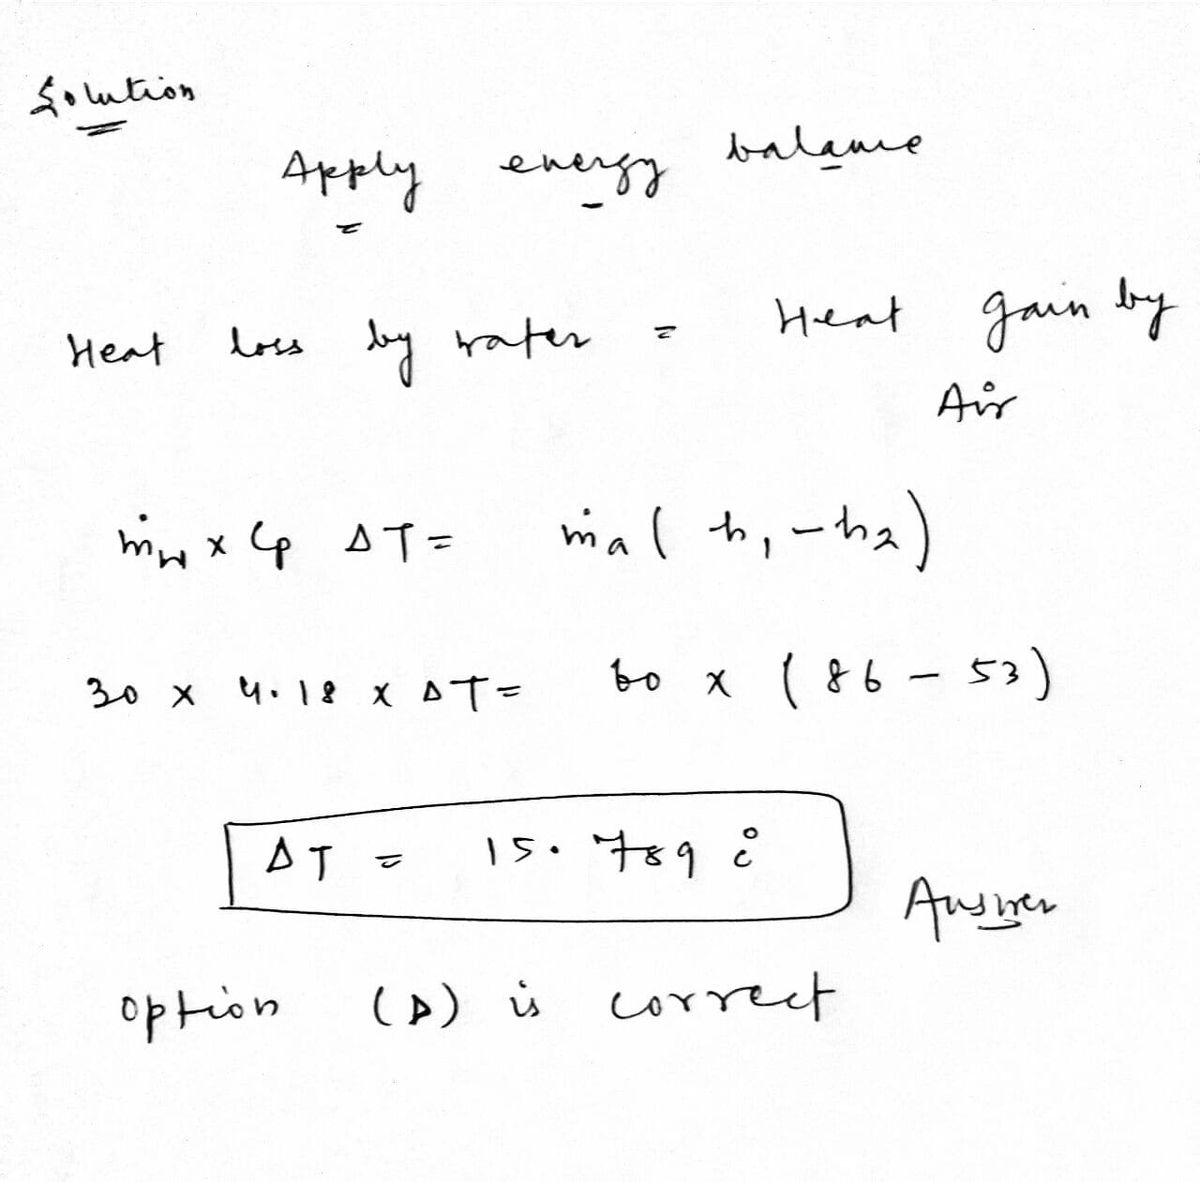 Solution
Apply energy balance
Heat loss by water = Heat gain by
Air
ṁw x Cp ΔT = ṁa ( h1 - h2 )
30 x 4.18 x ΔT = 60 x ( 86 - 53 )
ΔT = 15.789 °C
Answer
option (D) is correct